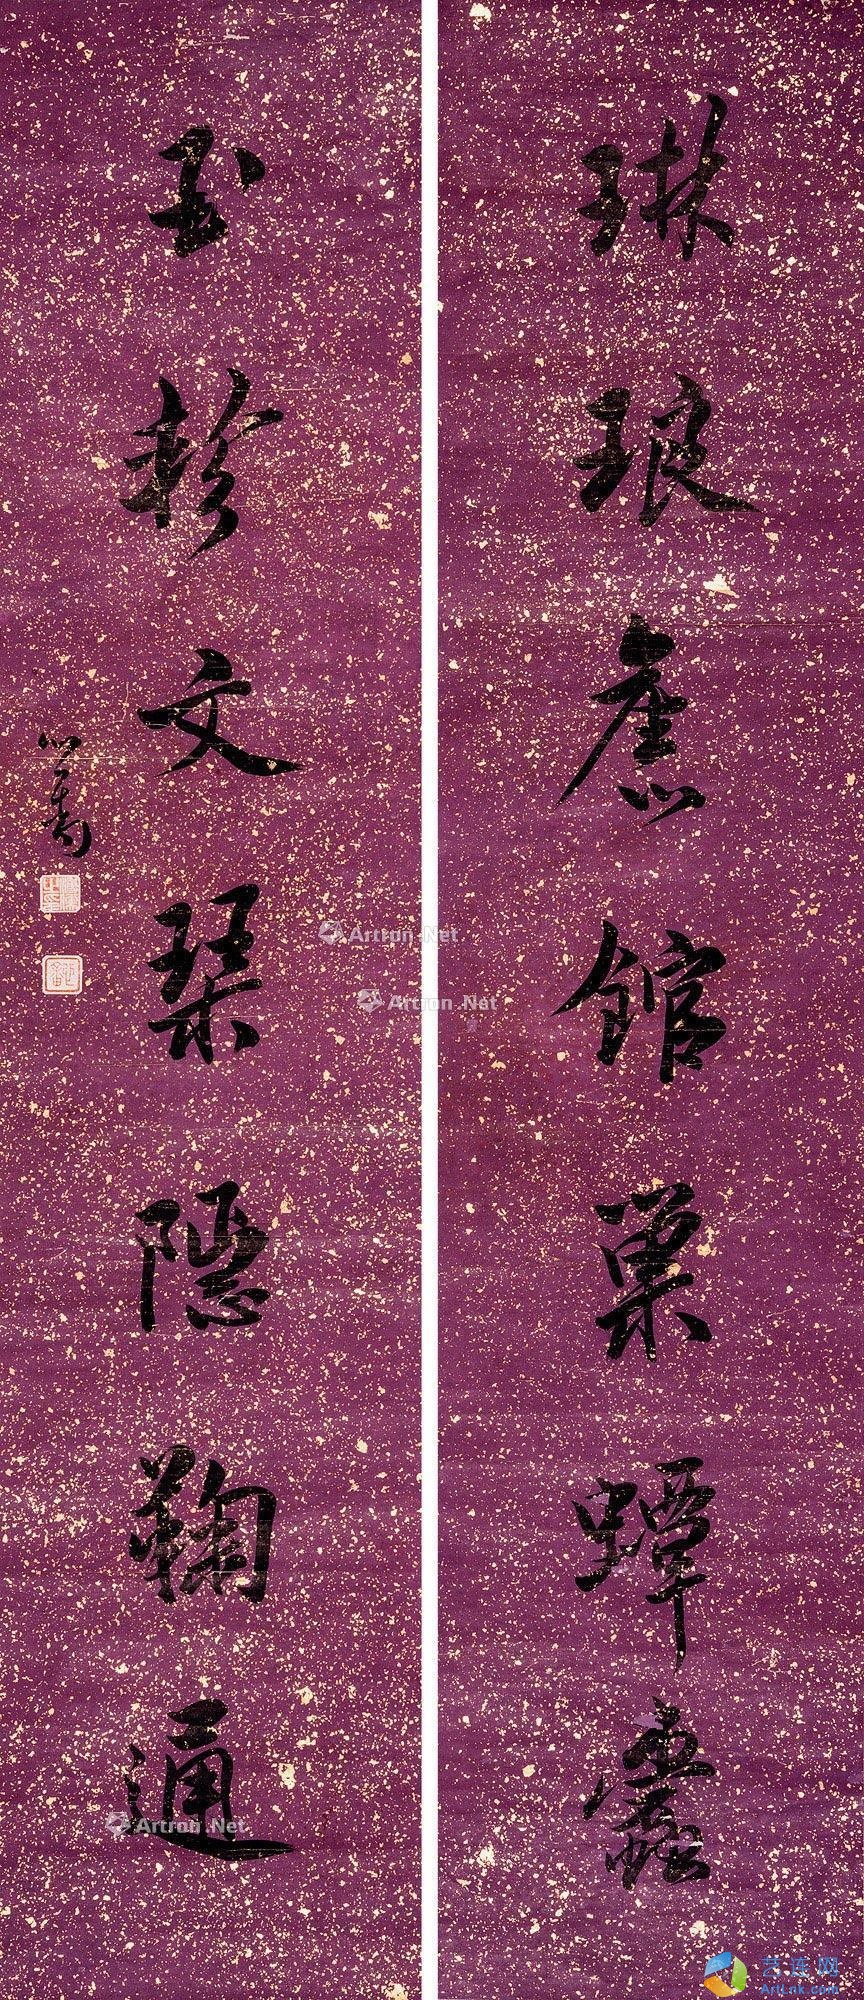 琳琅館巢蟫蠹
玉軫文琴隱鞠通
心畬
Artron.Net
Artron.Net
Artron.Net
艺连网
ArtLnk.com